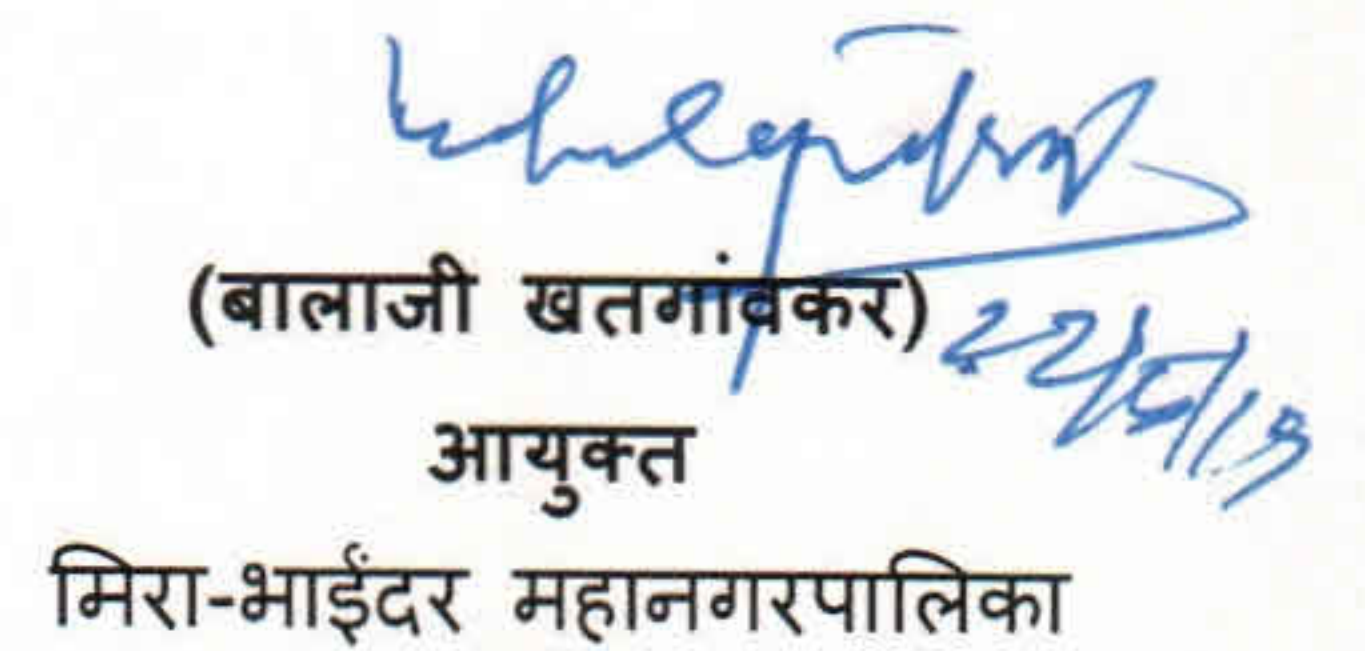 (बालाजी खतगांवकर)
आयुक्त
मिरा-भाईंदर महानगरपालिका